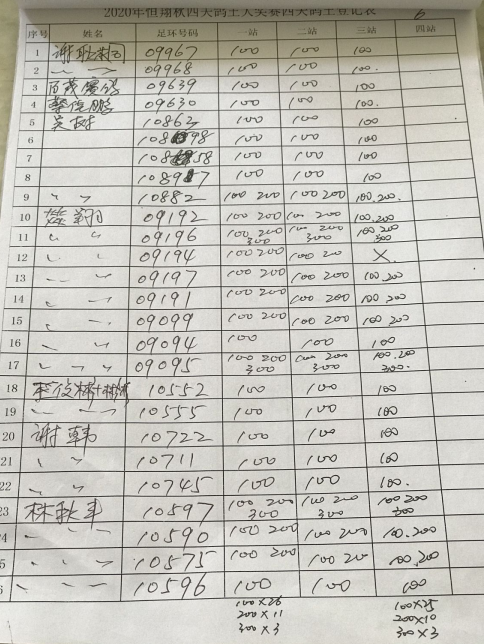 2020年恒翔秋四大鸽王大奖赛四大鸽王登记表 6
序号 姓名 足环号码 一站 二站 三站 四站
1 09967 100 100 100
2 〃 〃 09968 100 100 100.
3 09639 100 100 100.
4 09630 100 100 100.
5 10863 100 100 100
6 98 100 100 100
7 58 100 100 100
8 100 100 100
9 〃 〃 10882 100 200 100 200 100.200.
10 09192 100 200 100 200 100.200
11 〃 〃 09196 100 200 300 100 200 300 100 200 300
12 〃 〃 09194 100 200 100 200 ×
13 〃 〃 09197 100 200 100 200 100.200
14 〃 〃 09191 100 200 100 200 100.200
15 〃 〃 09099 100 200 100 200 100.200
16 〃 〃 09094 100 100 100
17 〃 〃 09095 100 200 300 100 200 300 100.200 300
18 10552 100 100 100
19 〃 〃 10555 100 100 100
20 谢韩 10722 100 100 100
21 〃 〃 10711 100 100 100
22 〃 〃 10745 100 100 100.
23 林秋丰 10597 100 200 300 100 200 300 100 200 300
4 〃 〃 10590 100 200 100 200 100.200
5 〃 〃 10575 100 200 100 200 100.200
6 〃 〃 10596 100 100 100
100×26 100×25
200×11 200×10
300×3 300×3